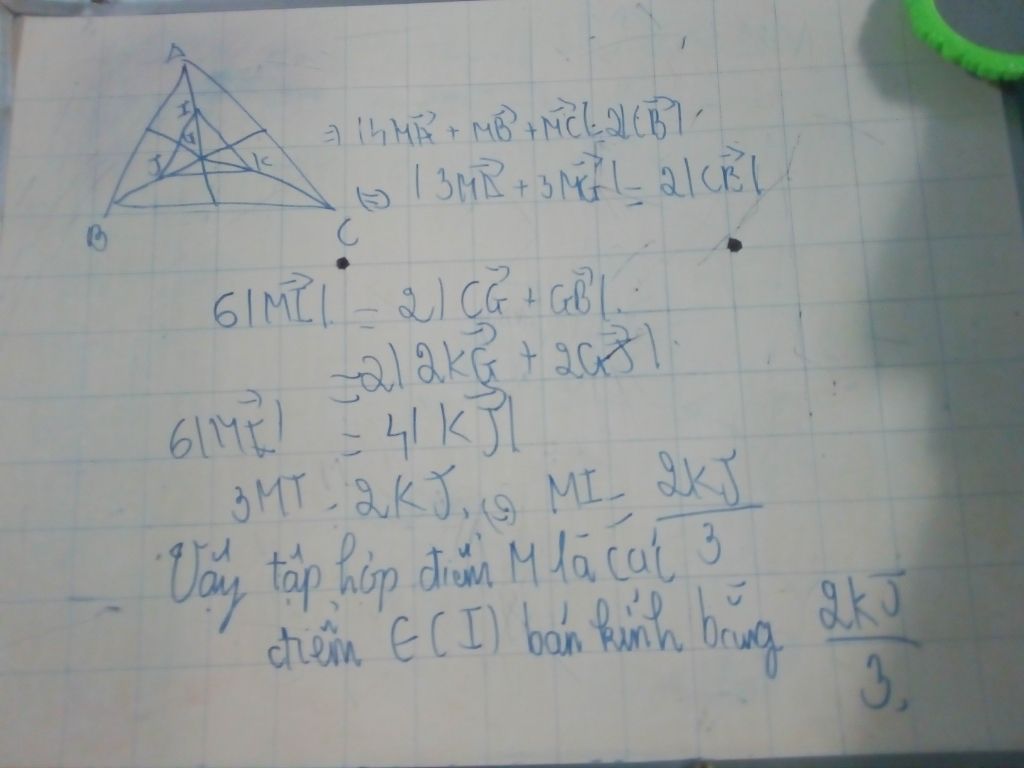 A
I
G
J
K
B
C
⇒ |4MA→ + MB→ + MC→| = 2|CB→|
⇔ |3MA→ + 3MG→| = 2|CB→|
6|MI→| = 2|CG→ + GB→|
= 2|2KG→ + 2GJ→|
6|MI→| = 4|KJ→|
3MI = 2KJ. ⇔ MI = 2KJ/3
Vậy tập hợp điểm M là các
điểm ∈ (I) bán kính bằng 2KJ/3.